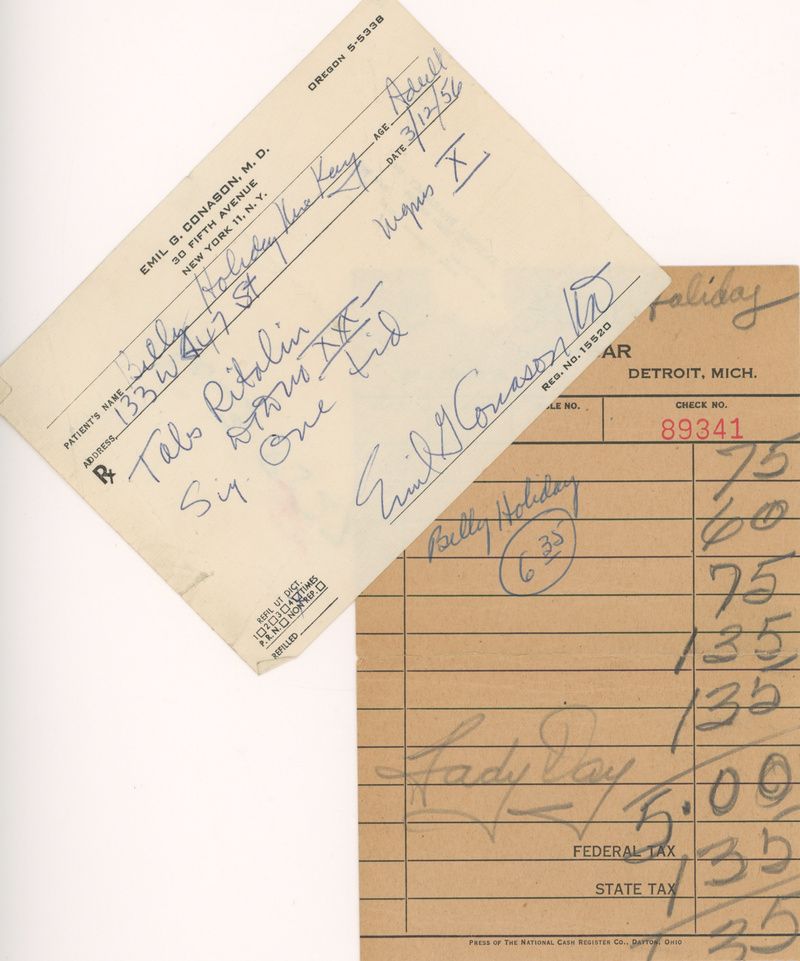 OREGON 5-5338
EMIL G. CONASON, M. D.
30 FIFTH AVENUE
NEW YORK 11, N. Y.
PATIENT'S NAME Billy Holiday Kay AGE Adult
ADDRESS 133 W 47 St DATE 3/12/56
Rx
Tabs Ritalin mgms X
XXX
Sig. One tid
Emil G Conason MD
REG. NO. 15520
REFIL UT DICT.
1 2 3 4 TIMES
P.R.N. NON REP.
REFILLED
Holiday
AR
DETROIT, MICH.
LE NO. CHECK NO.
89341
75
60
Billy Holiday
6 35
75
135
135
5.00
Lady Day
FEDERAL TAX 135
STATE TAX
35
PRESS OF THE NATIONAL CASH REGISTER CO., DAYTON, OHIO